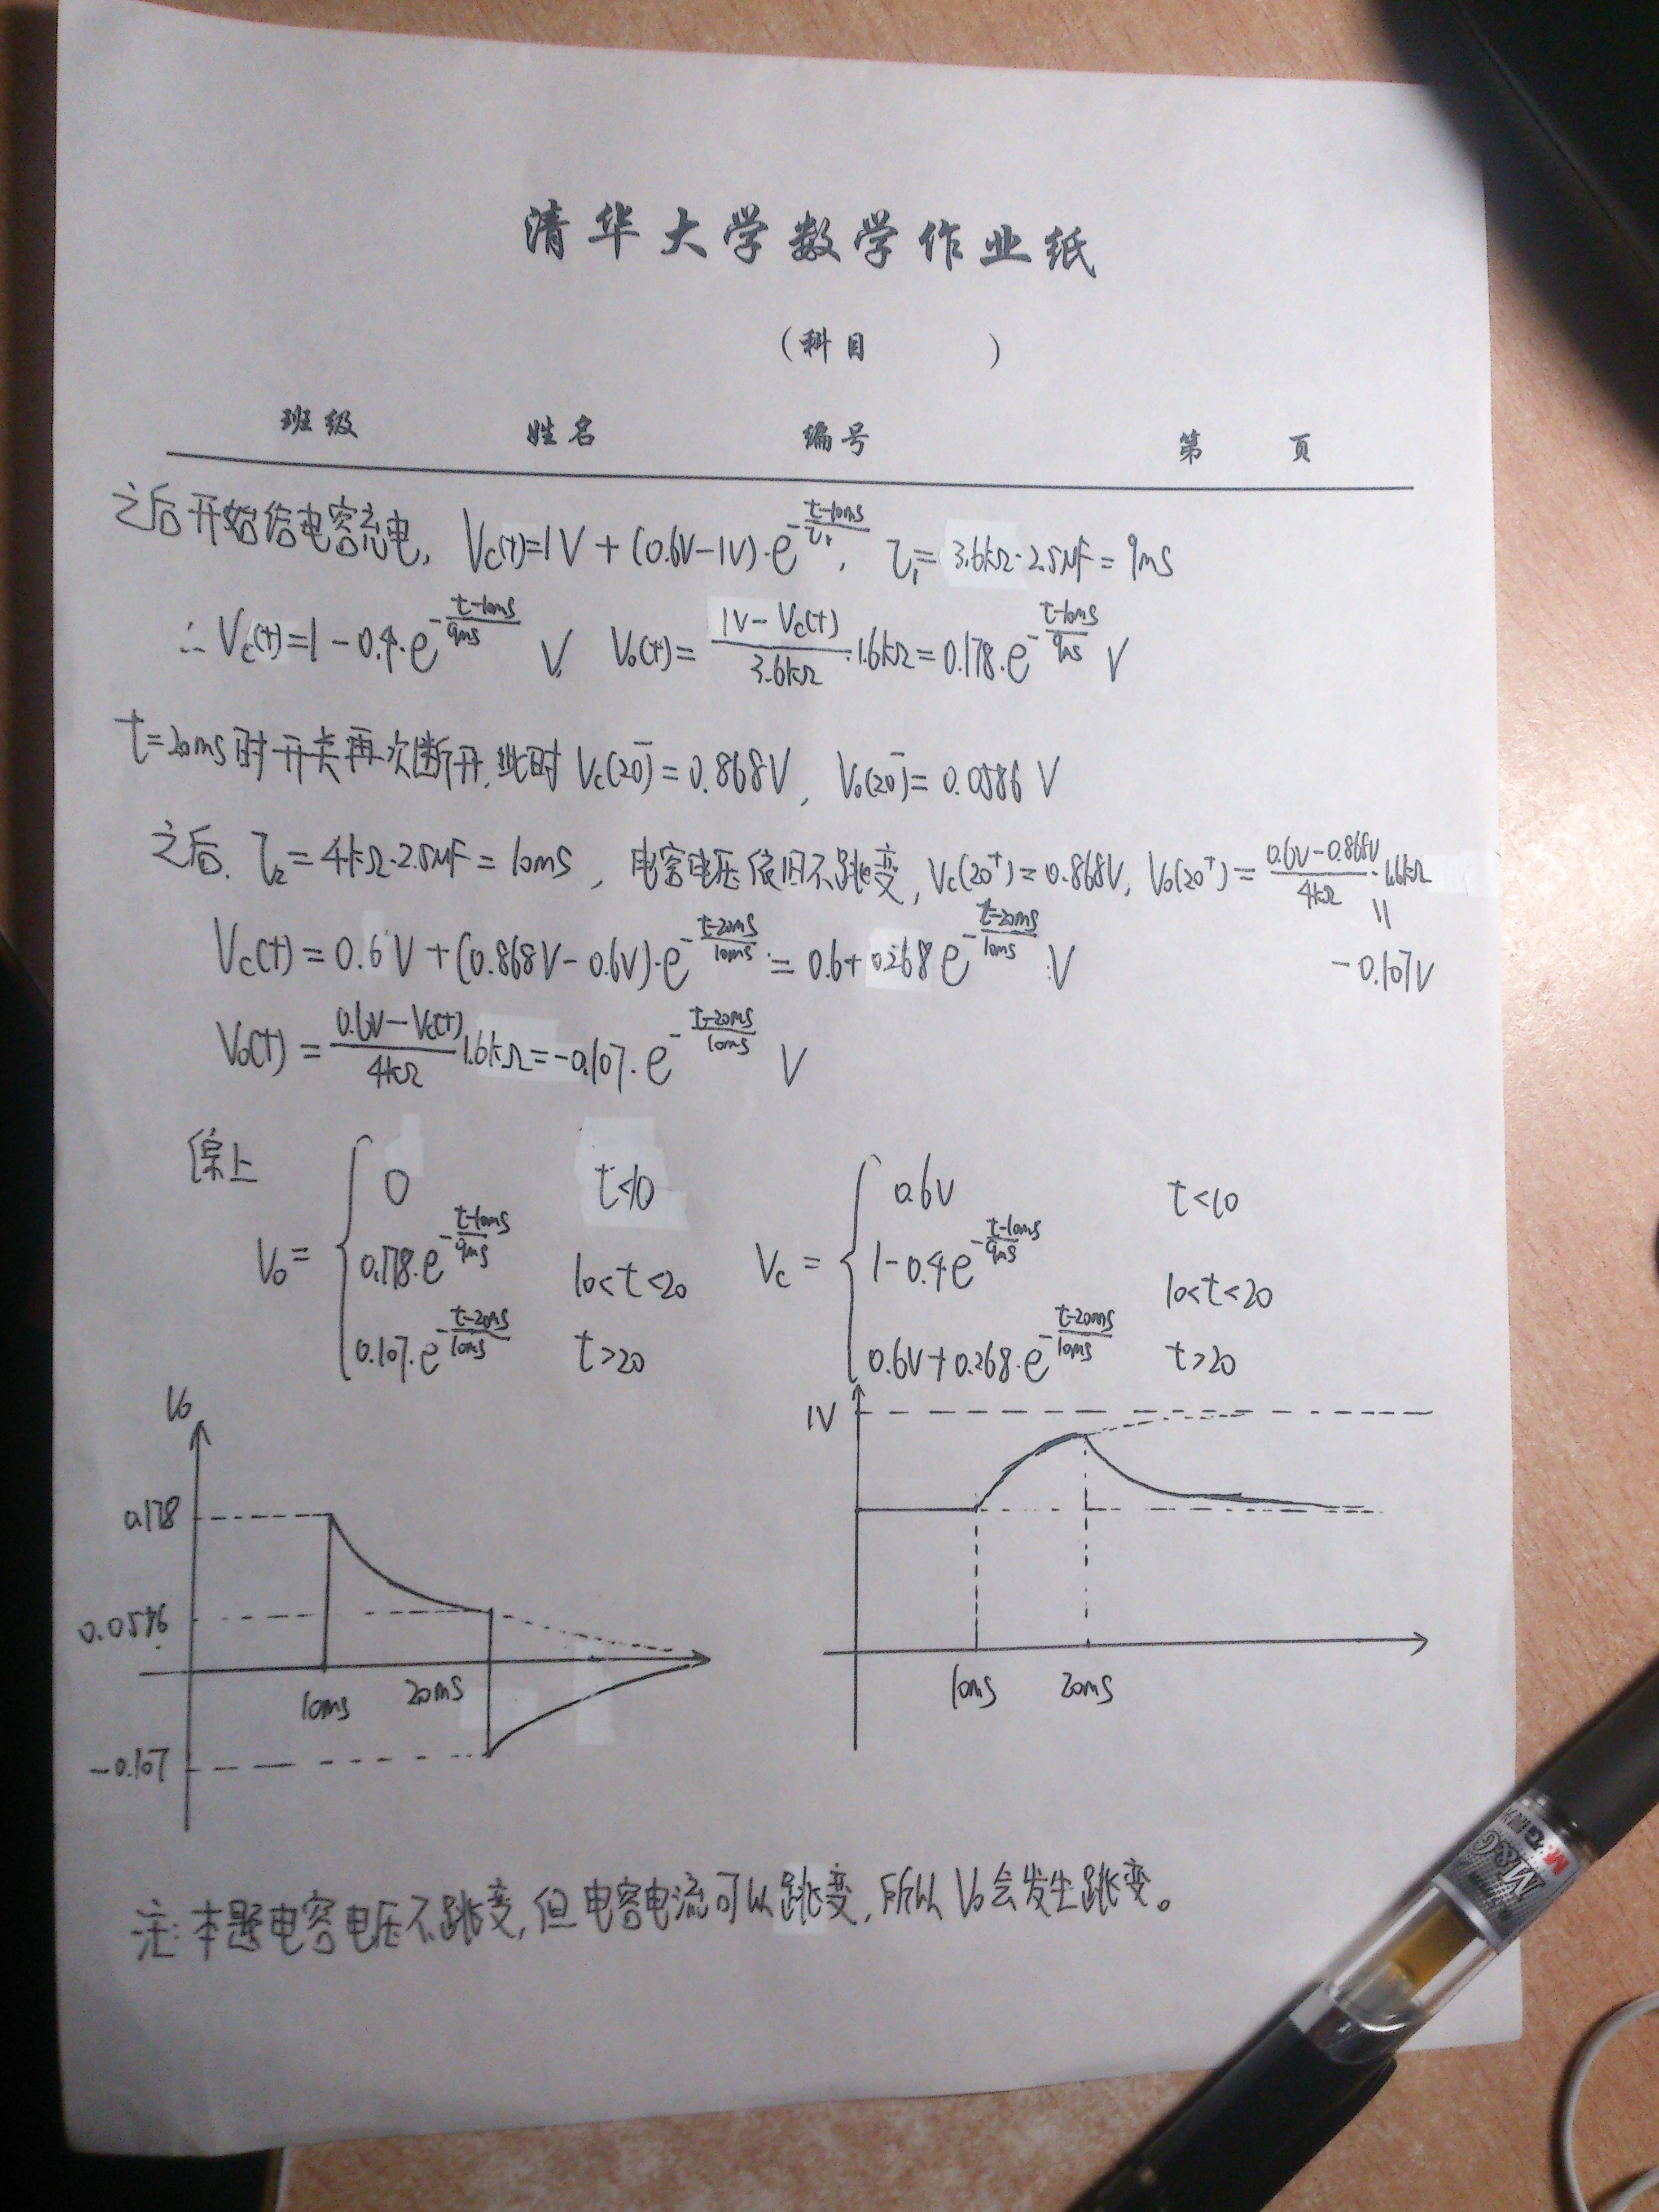 清华大学数学作业纸
(科目 )
班级 姓名 编号 第 页
之后开始给电容充电, Vc(t)=1V+(0.6V-1V)·e^{-\frac{t-10ms}{τ_1}}, τ_1=3.6kΩ·2.5μF=9ms
∴Vc(t)=1-0.4·e^{-\frac{t-10ms}{9ms}} V, Vo(t)=\frac{1V-Vc(t)}{3.6kΩ}·1.6kΩ=0.178·e^{-\frac{t-10ms}{9ms}} V
t=20ms时开关再次断开,此时 Vc(20^-)=0.868V, Vo(20^-)=0.0586 V
之后. τ_2=4kΩ·2.5μF=10ms, 电容电压依旧不跳变, Vc(20^+)=0.868V, Vo(20^+)=\frac{0.6V-0.868V}{4kΩ}·1.6kΩ
=
-0.107V
Vc(t)=0.6V+(0.868V-0.6V)·e^{-\frac{t-20ms}{10ms}}=0.6+0.268e^{-\frac{t-20ms}{10ms}} V
Vo(t)=\frac{0.6V-Vc(t)}{4kΩ}1.6kΩ=-0.107·e^{-\frac{t-20ms}{10ms}} V
综上
Vo={
0 t<10
0.178·e^{-\frac{t-10ms}{9ms}} 10<t<20
0.107·e^{-\frac{t-20ms}{10ms}} t>20
Vc={
0.6V t<10
1-0.4e^{-\frac{t-10ms}{9ms}} 10<t<20
0.6V+0.268·e^{-\frac{t-20ms}{10ms}} t>20
Vo
0.178
10ms
20ms
-0.107
1V
10ms
20ms
注:本题电容电压不跳变,但电容电流可以跳变,所以Vo会发生跳变。
M&G